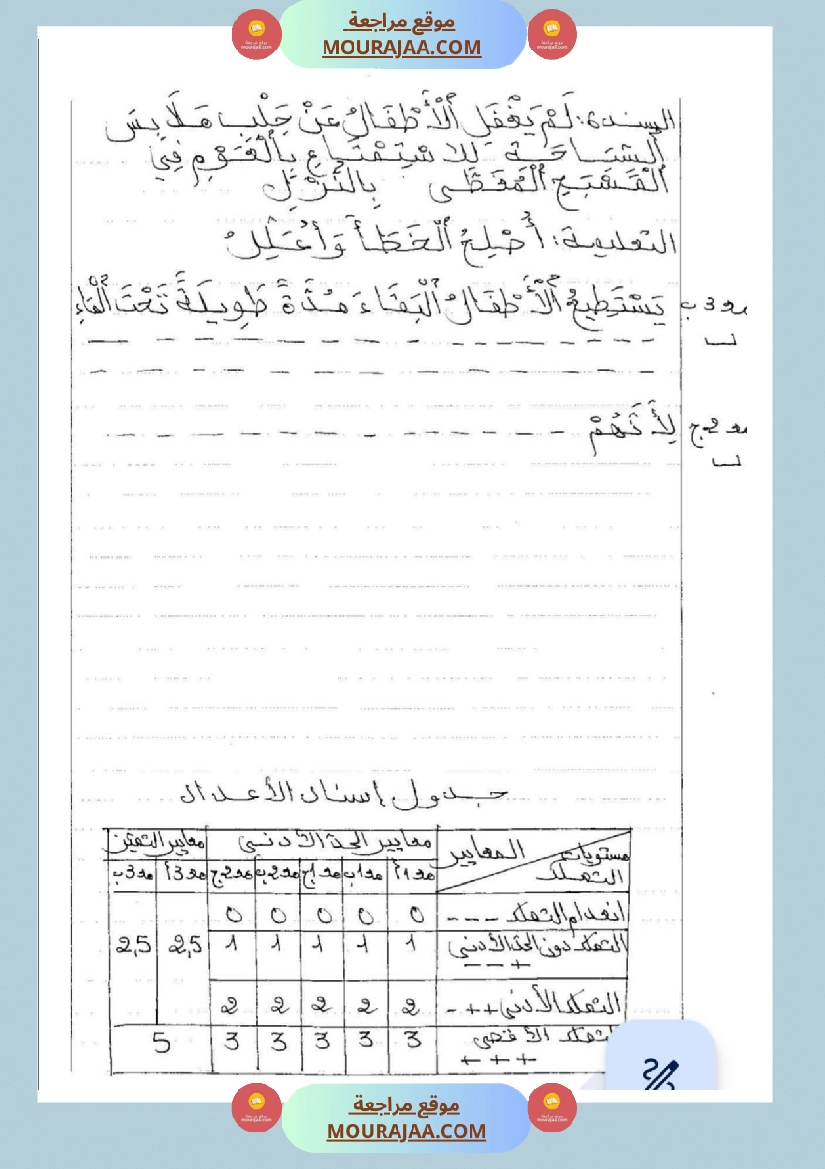 موقع مراجعة
MOURAJAA.COM
السند 6: لَمْ يَغْفَلِ ٱلْأَطْفَالُ عَنْ جَلْبِ مَلَابِسَ
ٱلسِّبَاحَةِ لِلاسْتِمْتَاعِ بِٱلْعَوْمِ فِي
ٱلْمَسْبَحِ ٱلْمُغَطَّى بِالنُّزُلِ
التعليمة: أُصْلِحُ ٱلْخَطَأَ وَأُعَلِّلُ
مع 3 ب يَسْتَطِيعُ ٱلْأَطْفَالُ ٱلْبَقَاءَ مُدَّةً طَوِيلَةً تَحْتَ ٱلْمَاءِ
مع 2 ج لِأَنَّهُمْ
جدول إسناد الأعداد
مستويات التملك المعايير معايير الحد الأدنى معايير التميّز
مع1أ مع1ب مع1ج مع2ب مع2ج مع3أ مع3ب
انعدام التملك --- 0 0 0 0 0
التملك دون الحد الأدنى 1 1 1 1 1 2,5 2,5
+ - -
التملك الأدنى ++- 2 2 2 2 2
التملك الأقصى 3 3 3 3 3 5
+ + +
موقع مراجعة
MOURAJAA.COM